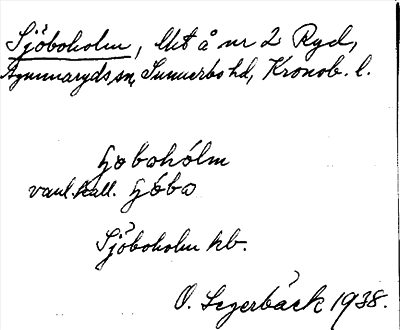 Sjöboholm, lht å nr 2 Ryd,
Agunnaryds sn, Sunnerbo hd, Kronob. l.
ɧobohólm
vanl. kall. ɧóbo
Sjöboholm kb.
O. Segerbäck 1938.